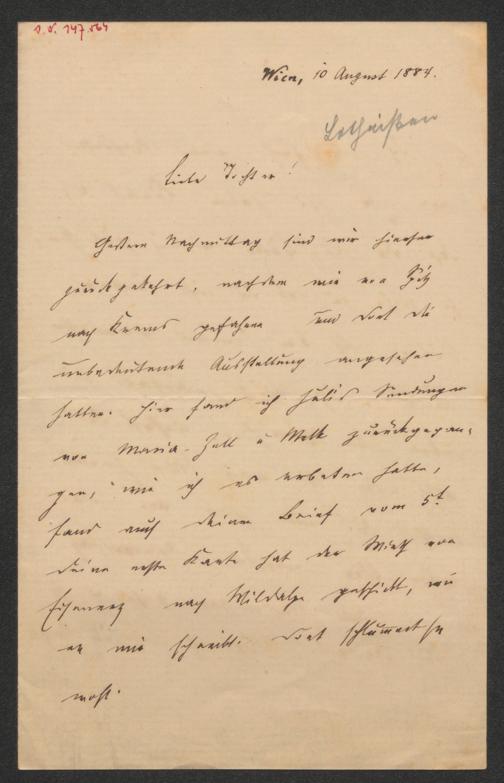 I. N. 147.564
Wien, 10 August 1884.
Lotheißen
Liebe Tochter!
Gestern Nachmittag sind wir hierher
zurückgekehrt, nachdem wir von Spitz
nach Krems gefahren und dort die
unbedeutende Ausstellung angesehen
hatten. Hier fand ich Sendungen
von Maria-Zell u Melk zurückgegan-
gen, wie ich es erbeten hatte,
fand auch deinen Brief vom 5t.
Deine erste Karte hat der Wirth von
Eisenerz nach Wildalpe geschickt, wie
er mir schreibt. Dort schlummert sie
wohl.